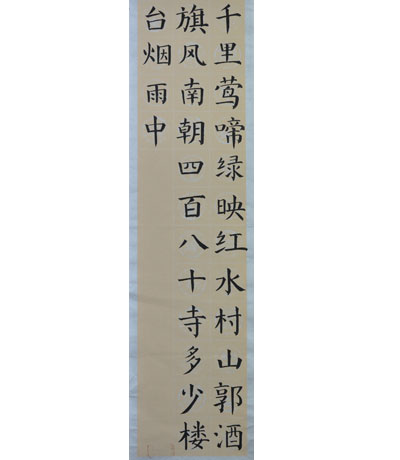 千里莺啼绿映红水村山郭酒
旗风南朝四百八十寺多少楼
台烟雨中